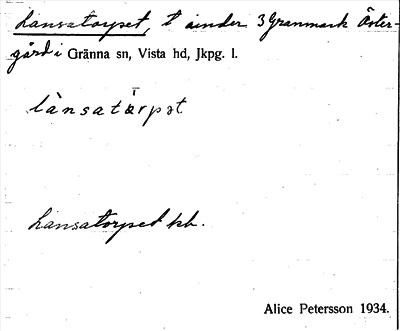 Lansatorpet, t under 3 Granmark Öster-
gård i Gränna sn, Vista hd, Jkpg. l.
lànsatärpət
Lansatorpet kb.
Alice Petersson 1934.